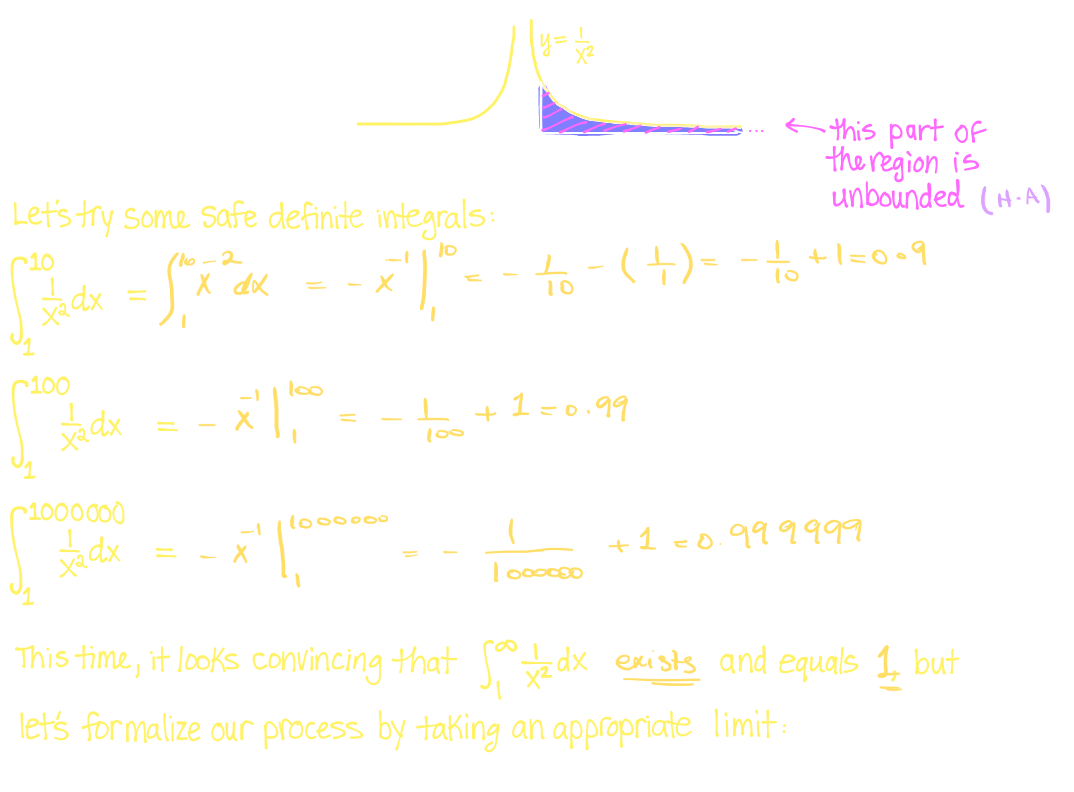 y = 1/x²
... ← this part of
the region is
unbounded (H.A)
Let's try some safe definite integrals:
∫₁¹⁰ 1/x² dx = ∫₁¹⁰ x⁻² dx = - x⁻¹ |₁¹⁰ = - 1/10 - (1/1) = - 1/10 + 1 = 0.9
∫₁¹⁰⁰ 1/x² dx = - x⁻¹ |₁¹⁰⁰ = - 1/100 + 1 = 0.99
∫₁¹⁰⁰⁰⁰⁰⁰ 1/x² dx = - x⁻¹ |₁¹⁰⁰⁰⁰⁰⁰ = - 1/1000000 + 1 = 0.999999
This time, it looks convincing that ∫₁^∞ 1/x² dx exists and equals 1, but
let's formalize our process by taking an appropriate limit: